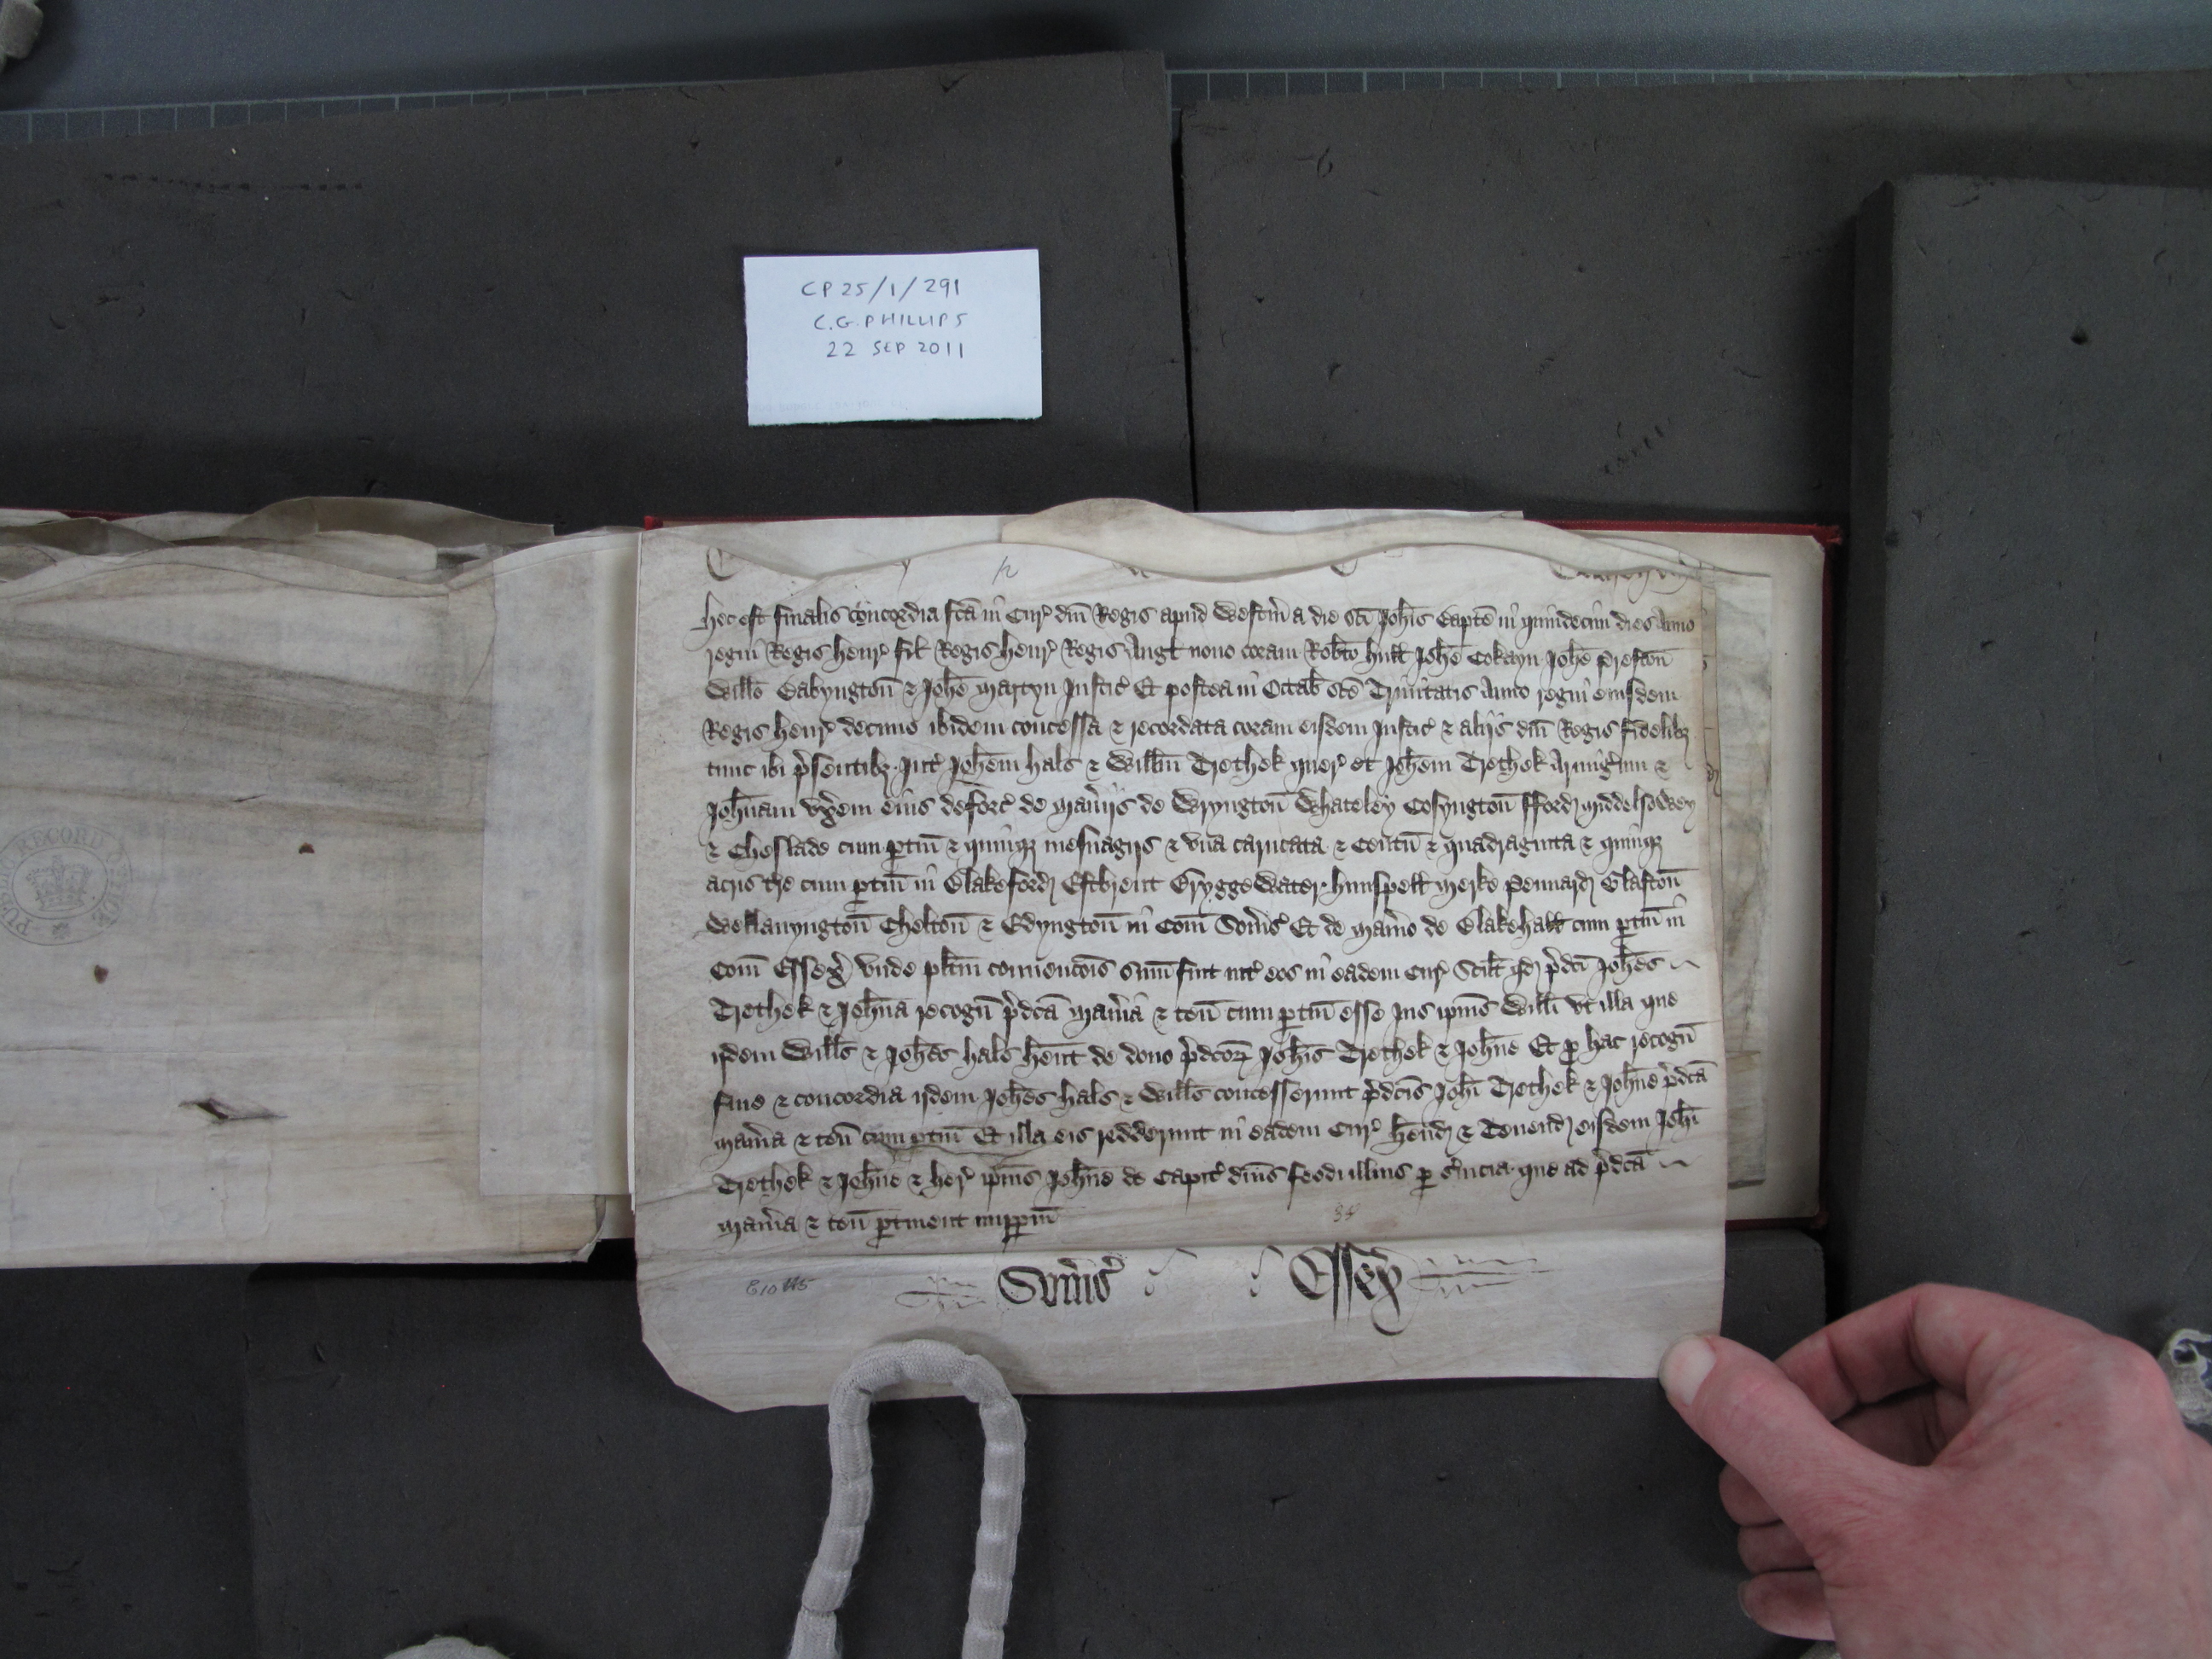 CP 25/1/291
C.G. PHILLIPS
22 SEP 2011
hec est finalis concordia fc̄a in Cur̕ dn̄i Regis apud Westm̄ a die sc̄i Joh̄is Bapt̄e in quindecim dies Anno
regni Regis henr̕ fil̄ Regis henr̕ Regis Angl̄ nono coram Rob̄to hull̄ Joh̄e Cokayn Joh̄e Preston̄
Will̄o Babyngton̄ ⁊ Joh̄e Martyn Justic̕ Et postea in Octab̄ sc̄e Trinitatis Anno regni eiusdem
Regis henr̕ decimo ibidem concessa ⁊ recordata coram eisdem Justic̕ ⁊ aliijs dn̄i Regis fidelibꝫ
tunc ibi p̕sentibꝫ Int̕ Joh̄em hals ⁊ Will̄m Trethek quer̕ et Joh̄em Trethek Armig̕um ⁊
Joh̄nam vx̕em eius deforc̕ de man̕ijs de Wryngton̄ Whateley Cosyngton̄ fford̕ Middelsowey
⁊ Cheslade cum ꝑtin̄ ⁊ quinqꝫ mesuagijs ⁊ vna carucata ⁊ Centū ⁊ quadraginta ⁊ quinqꝫ
acris t̕re cum ꝑtin̄ in Blakeford̕ Estbrent Bryggewater hunspell̄ Merke Pennard̕ Glaston̄
Wollauyngton̄ Chelton̄ ⁊ Edyngton̄ in Com̄ Som̕s̕ Et de man̕io de Blakehall̄ cum ꝑtin̄ in
Com̄ Essex̕ vnde pl̄itm̄ conuenc̄ois sum̄ fuit int̕ eos in eadem Cur̕ Scil̄t qd̕ p̕dc̄i Joh̄es
Trethek ⁊ Joh̄na recogn̄ p̕dc̄a man̕ia ⁊ ten̄ cum ꝑtin̄ esse Jus ip̄ius Will̄i vt illa que
ijdem Will̄s ⁊ Joh̄es hals h̄ent de dono p̕dc̄oꝝ Joh̄is Trethek ⁊ Joh̄ne Et ꝓ hac recogn̄
fine ⁊ concordia ijdem Joh̄es hals ⁊ Will̄s concesserunt p̕dc̄is Joh̄i Trethek ⁊ Joh̄ne p̕dc̄a
man̕ia ⁊ ten̄ cum ꝑtin̄ Et illa eis reddiderunt in eadem Cur̕ h̄end̕ ⁊ Tenend̕ eisdem Joh̄i
Trethek ⁊ Joh̄ne ⁊ her̕ ip̄ius Joh̄ne de Capit̕ dn̄is feodi illius ꝑ s̕uicia que ad p̕dc̄a
man̕ia ⁊ ten̄ ꝑtinent imꝑpm̄
Som̕s̕ Essex̕